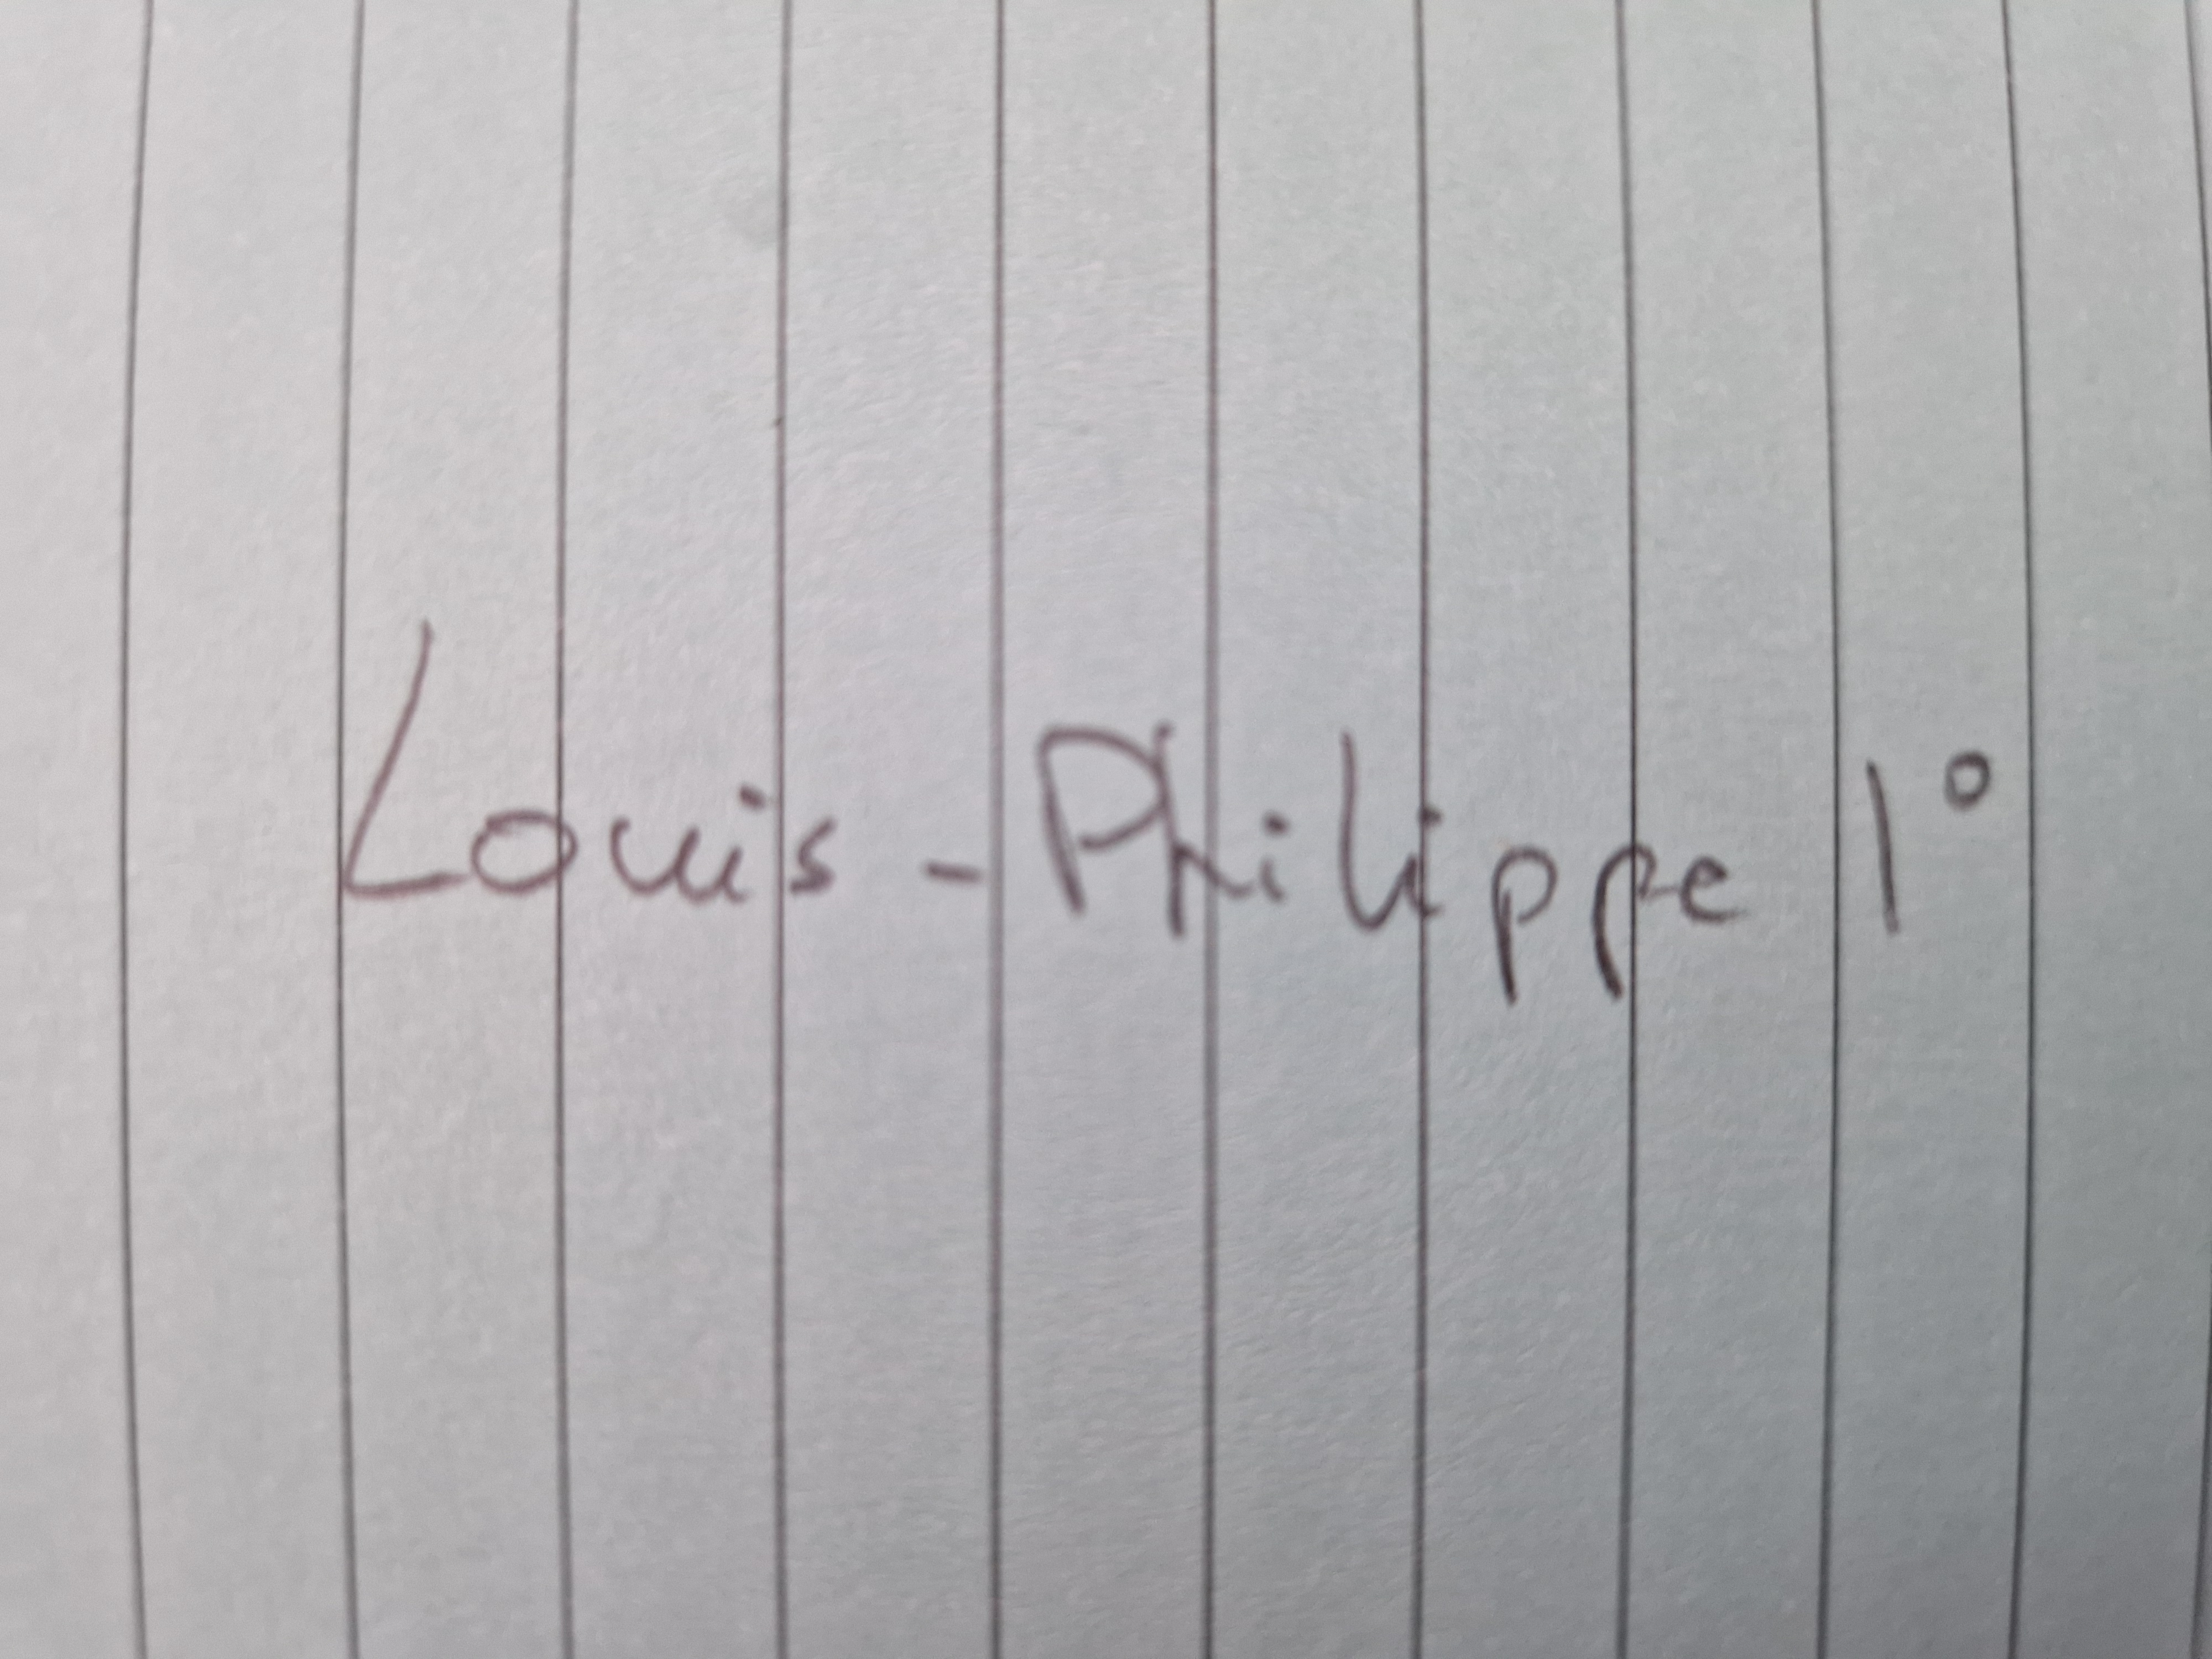 Louis - Philippe 1°